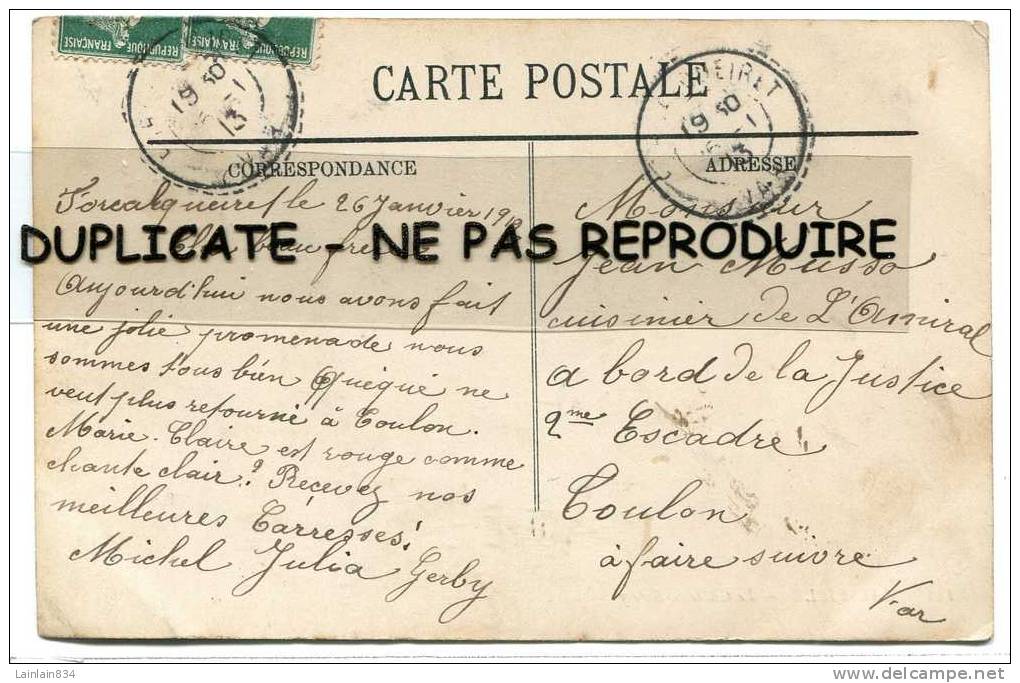 RÉPUBLIQUE FRANÇAISE
RÉPUBLIQUE FRANÇAISE
CARTE POSTALE
19 30
13
VAR
19 30
13
VAR
CORRESPONDANCE
ADRESSE
Forcalqueiret le 26 Janvier 1913
DUPLICATE - NE PAS REPRODUIRE
Cher beau frère
Aujourd'hui nous avons fait
une jolie promenade nous
sommes tous bien Quéqué ne
veut plus retourné à Toulon.
Marie-Claire est rouge comme
chante clair? Reçevez nos
meilleures Carresses!
Michel Julia Gerby
Monsieur
Jean Musso
cuisinier de L'Amiral
a bord de la Justice
2me Escadre
Toulon
à faire suivre
Var
Lainlain834
www.delcampe.net